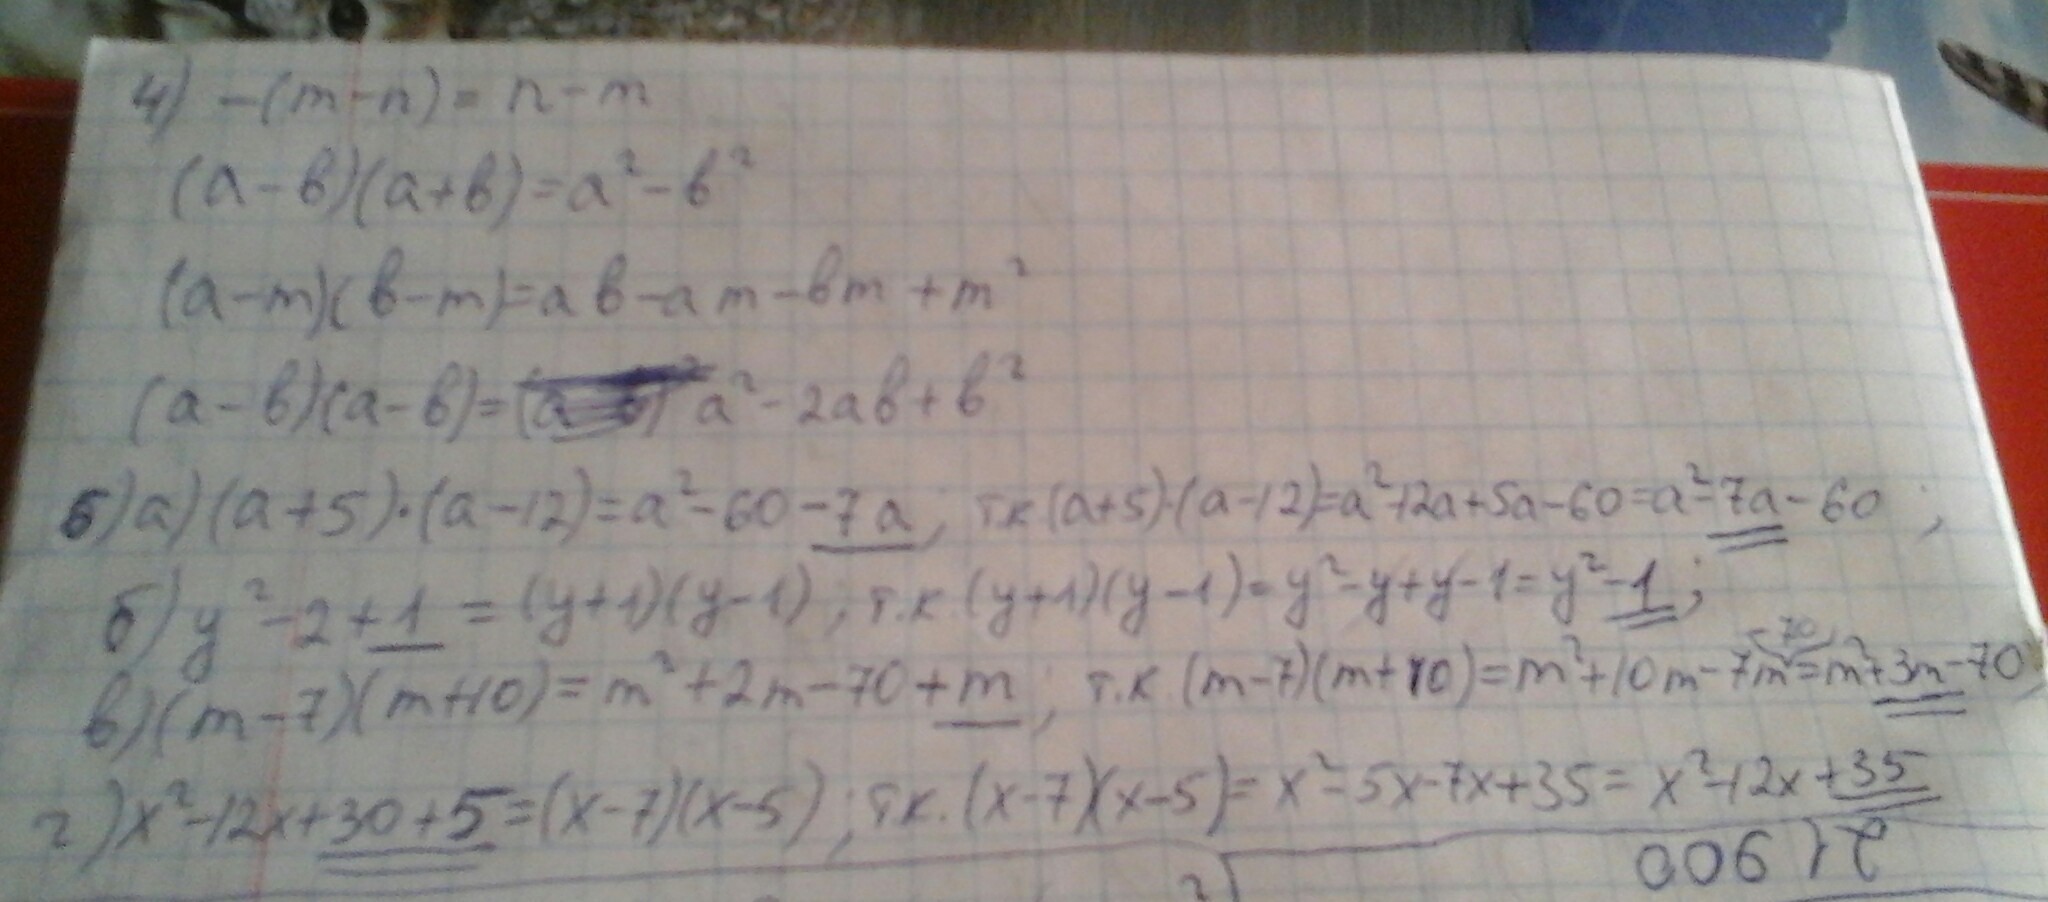 4) -(m-n)= n-m
(a-в)(a+в)=a²-в²
(a-m)(в-m)=aв-am-вm+m²
(a-в)(a-в)= a²-2aв+в²
5)а)(a+5)·(a-12)=a²-60-7a; т.к (a+5)·(a-12)=a²-12a+5a-60=a²-7a-60;
б)y²-2+1=(y+1)(y-1); т.к.(y+1)(y-1)=y²-y+y-1=y²-1;
в)(m-7)(m+10)=m²+2m-70+m; т.к.(m-7)(m+10)=m²+10m-7m-70=m²+3m-70
г)x²-12x+30+5=(x-7)(x-5); т.к.(x-7)(x-5)=x²-5x-7x+35=x²-12x+35